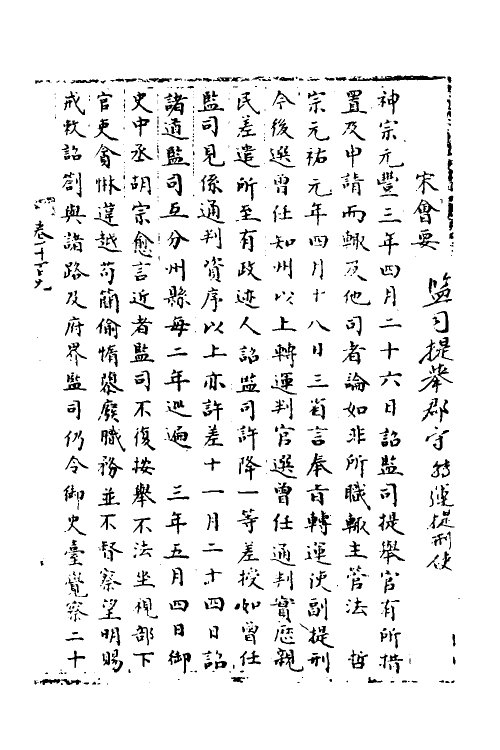 宋會要　監司提舉郡守　轉運提刑使
神宗元豐三年四月二十六日詔監司提舉官有所措
置及申請而輒及他司者論如非所職輒主管法　哲
宗元祐元年四月十八日三省言奉旨轉運使副提刑
今後選曾任知州以上轉運判官選曾任通判實歷親
民差遣所至有政迹人詔監司許降一等差授如曾任
監司見係通判資序以上亦許差十一月二十四日詔
諸道監司互分州縣每二年巡遍　三年五月四日御
史中丞胡宗愈言近者監司不復按舉不法坐視部下
官吏貪惏違越苟簡偷惰隳廢職務並不督察望明賜
戒敕詔劄與諸路及府界監司仍令御史臺覺察二十